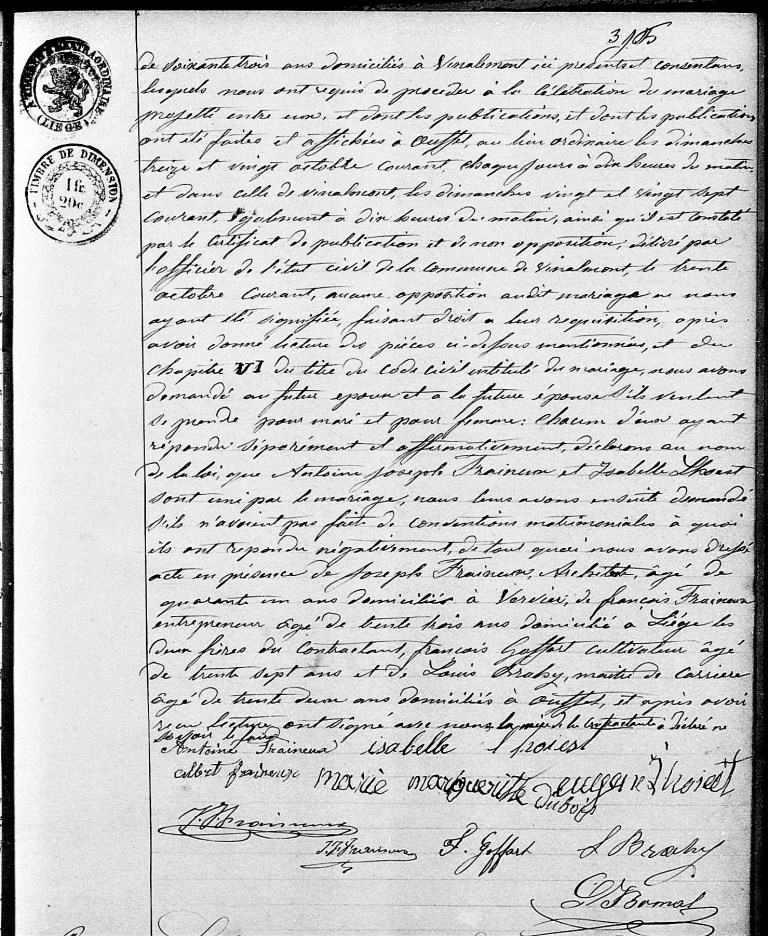 A TIMBRE EXTRAORDINAIRE
(LIEGE)
TIMBRE DE DIMENSION
1 fr.
20c
de soixante trois ans domiciliés à Vinalmont ici présents et consentans,
lesquels nous ont requis de procéder à la célébration du mariage
projetté entre eux, et dont les publications, et dont les publications
ont été faites et affichées à Ouffet, au lieu ordinaire les dimanches
treize et vingt octobre courant, chaque jours à dix heures du matin
et dans celle de Vinalmont, les dimanches vingt et vingt sept
courant, également à dix heures du matin, ainsi qu'il est constaté
par le certificat de publication et de non opposition, délivré par
l'officier de l'état civil de la commune de Vinalmont, le trente
octobre courant, aucune opposition audit mariage ne nous
ayant été signifiée, faisant droit a leur requisition, après
avoir donné lecture des pièces ci-dessus mentionnées, et du
chapitre VI du titre du Code civil intitulé du mariage, nous avons
demandé au futur epoux et a la future épouse s'ils veulent
se prendre pour mari et pour femme; chacun d'eux ayant
répondu séparément et affirmativement, déclarons au nom
de la loi, que Antoine Joseph Fraineux et Isabelle Thoest
sont uni par le mariage, nous leurs avons ensuite demandé
s'ils n'avoient pas fait de conventions matrimoniales à quoi
ils ont repondu négativement, de tout quoi nous avons dressé
acte en présence de Joseph Fraineux, Architecte, âgé de
quarante un ans domiciliés à Vervier, de françois Fraineux
entrepreneur âgé de trente trois ans domicilié à Liége les
deux frères du Contractant, françois Goffart cultivateur âgé
de trente sept ans et de Louis Brahy, maître de carrière
âgé de trente deux ans domiciliés à Ouffet, et après avoir
reçu lecture ont signé avec nous, la mère de la contractante a déclaré ne
savoir le faire
Antoine Fraineux isabelle
albert fraineux marie marguerite dubois eugene Thoest
J. J. Fraineux
J. F. Fraineux F. Goffart L Brahy